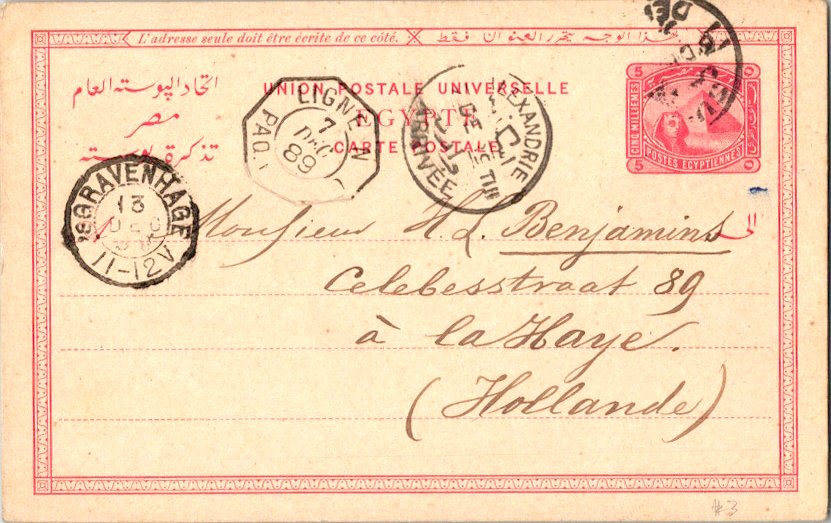 L'adresse seule doit être écrite de ce côté.
هذا الوجه يحرر العنوان فقط
اتحاد البوسته العام
مصر
تذكرة بوسته
UNION POSTALE UNIVERSELLE
EGYPTE
CARTE POSTALE
5 5
CINQ MILLIEMES
POSTES EGYPTIENNES
5
LIGNE N
PAQ.
7
DEC
89
ALEXANDRIE
ARRIVÉE
'SGRAVENHAGE
13
DEC
11-12V
Monsieur H. L. Benjamins
الى
Celebesstraat 89
à la Haye.
(Hollande)
#3